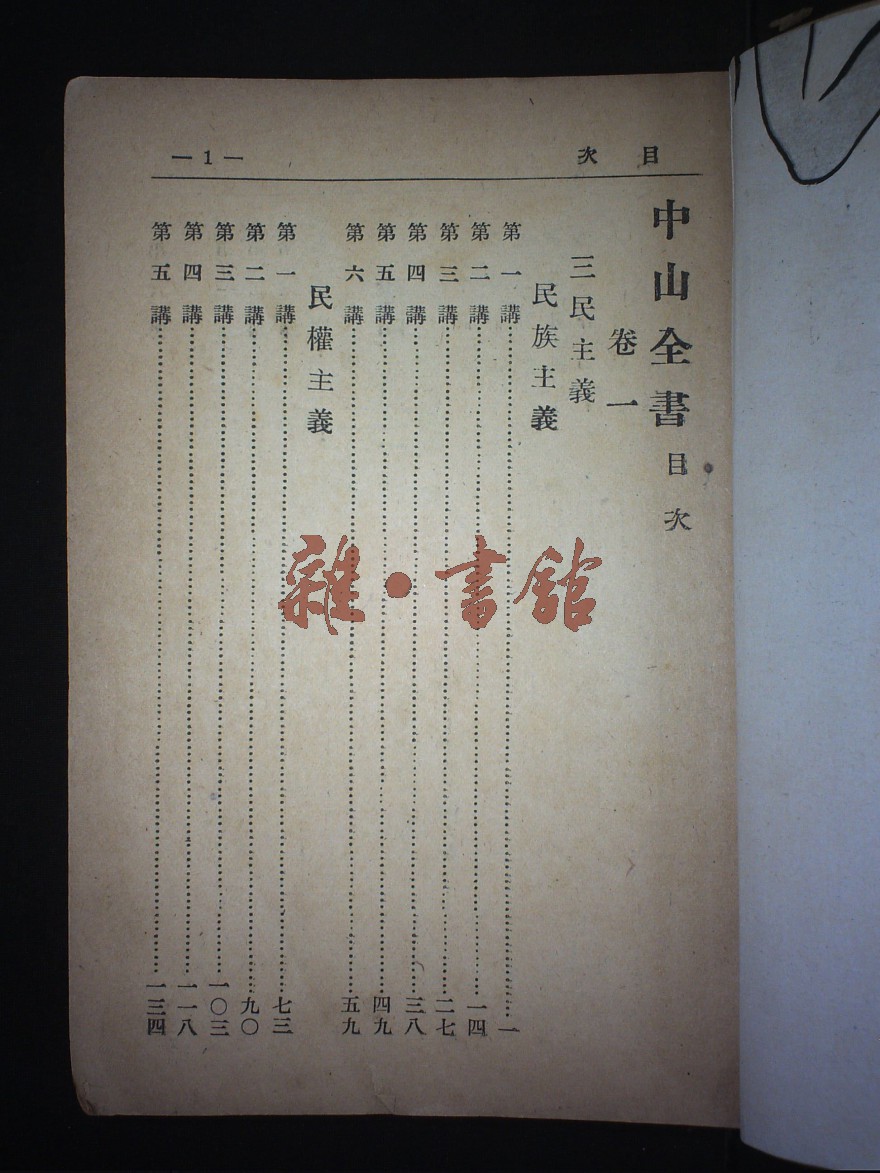 目次
— 1 —
中山全書目次
卷一
三民主義
民族主義
第一講……一
第二講……一四
第三講……二七
第四講……三八
第五講……四九
第六講……五九
民權主義
第一講……七三
第二講……九〇
第三講……一〇三
第四講……一一八
第五講……一三四
雜·書館